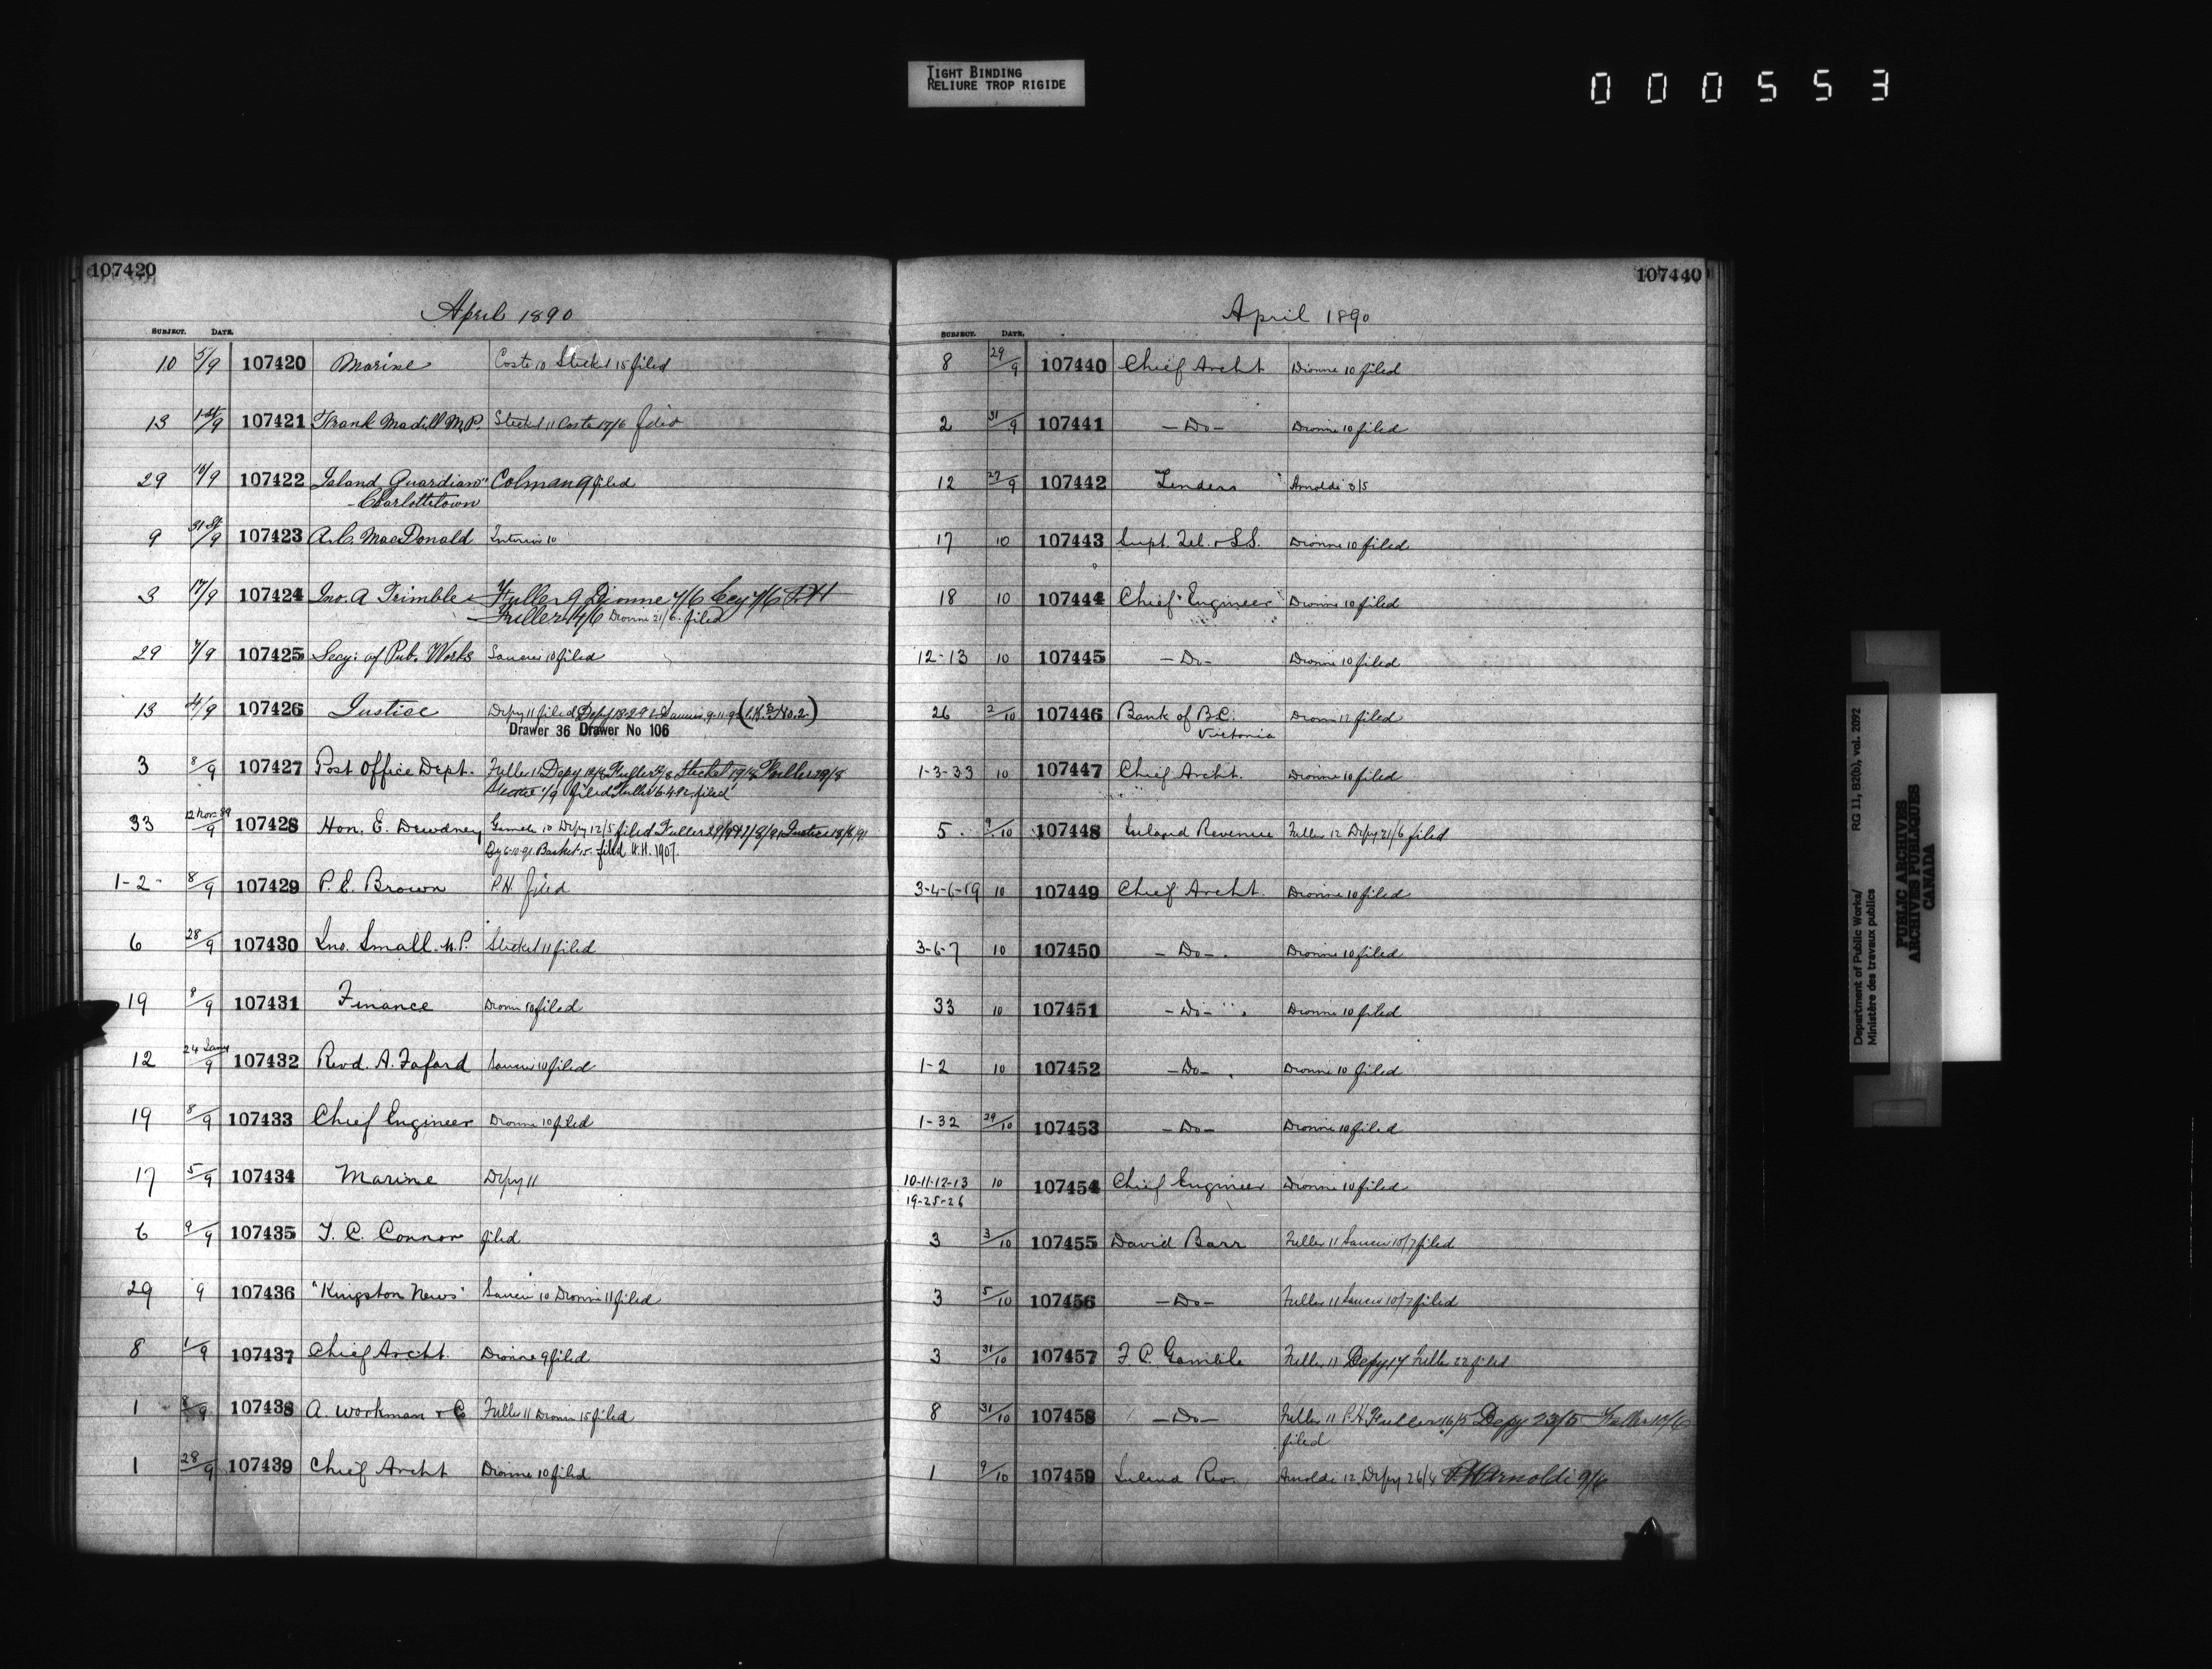 TIGHT BINDING
RELIURE TROP RIGIDE
000553
107420
April 1890
SUBJECT. DATE.
10 5/9 107420 Marine Coste 10 Steckel 15 filed
13 1st/9 107421 Frank Madill M.P. Steckel 11 Coste 17/6 filed
29 107422 Island Guardian" Colman 9 filed
- Charlottetown
9 31st/9 107423 A.C. MacDonald 10
3 17/9 107424 Jno. A Trimble Fuller 9 Dionne 4/6 P.H
Fuller 14/6 Dionne 21/6 filed
29 7/9 107425 Secy: of Pub. Works 10 filed
13 107426 Justice Depy 11 filed
Drawer 36 Drawer No 106
3 8/9 107427 Post Office Dept. Fuller 11 Depy Fuller Steckel 19/8 Fuller 29/8
filed Fuller 16.4.92 filed
33 12 Nov. 89/9 107428 Hon. E. Dewdney Gamble 10 Depy 12/5 filed Fuller Justice 18/8/91
6-10-91 Basket 15 filed H.H. 1907.
1-2- 8/9 107429 P.E. Brown P.H. filed
6 28/9 107430 Jno. Small M.P. Steckel 11 filed
19 8/9 107431 Finance Dionne 10 filed
12 24 Jany/9 107432 Revd. A. Fafard 10 filed
19 8/9 107433 Chief Engineer Dionne 10 filed
17 5/9 107434 Marine Depy 11
6 9/9 107435 T. C. Connor filed
29 9 107436 "Kingston News" 10 Dionne 11 filed
8 1/9 107437 Chief Archt. Dionne 9 filed
1 8/9 107438 A. Workman & C Fuller 11 Dionne 15 filed
1 28/9 107439 Chief Archt Dionne 10 filed
107440
April 1890
SUBJECT. DATE.
8 29/9 107440 Chief Archt Dionne 10 filed
2 31/9 107441 - Do - Dionne 10 filed
12 27/9 107442 Tenders Arnoldi 3/5
17 10 107443 Supt. Tel. & S.S. Dionne 10 filed
18 10 107444 Chief Engineer Dionne 10 filed
12-13 10 107445 - Do - Dionne 10 filed
26 2/10 107446 Bank of B.C. Dionne 12 filed
Victoria
1-3-33 10 107447 Chief Archt. Dionne 10 filed
5. 9/10 107448 Inland Revenue Fuller 12 Depy 21/6 filed
3-4-6-19 10 107449 Chief Archt. Dionne 10 filed
3-6-7 10 107450 - Do - Dionne 10 filed
33 10 107451 - Do - Dionne 10 filed
1-2 10 107452 - Do - Dionne 10 filed
1-32 29/10 107453 - Do - Dionne 10 filed
10-11-12-13 10 107454 Chief Engineer Dionne 10 filed
19-25-26
3 3/10 107455 David Barr Fuller 11 10/7 filed
3 5/10 107456 - Do - Fuller 11 10/7 filed
3 31/10 107457 F. C. Gamble Fuller 11 Depy 17 Fuller 22 filed
8 31/10 107458 - Do - Fuller 11 P.H. Fuller 16/5 Depy 23/5 Fuller
filed
1 9/10 107459 Inland Rev. Arnoldi 12 Depy 26/4 P.H. Arnoldi
Department of Public Works/
Ministère des travaux publics
RG 11, B2(b), vol. 2092
PUBLIC ARCHIVES
ARCHIVES PUBLIQUES
CANADA